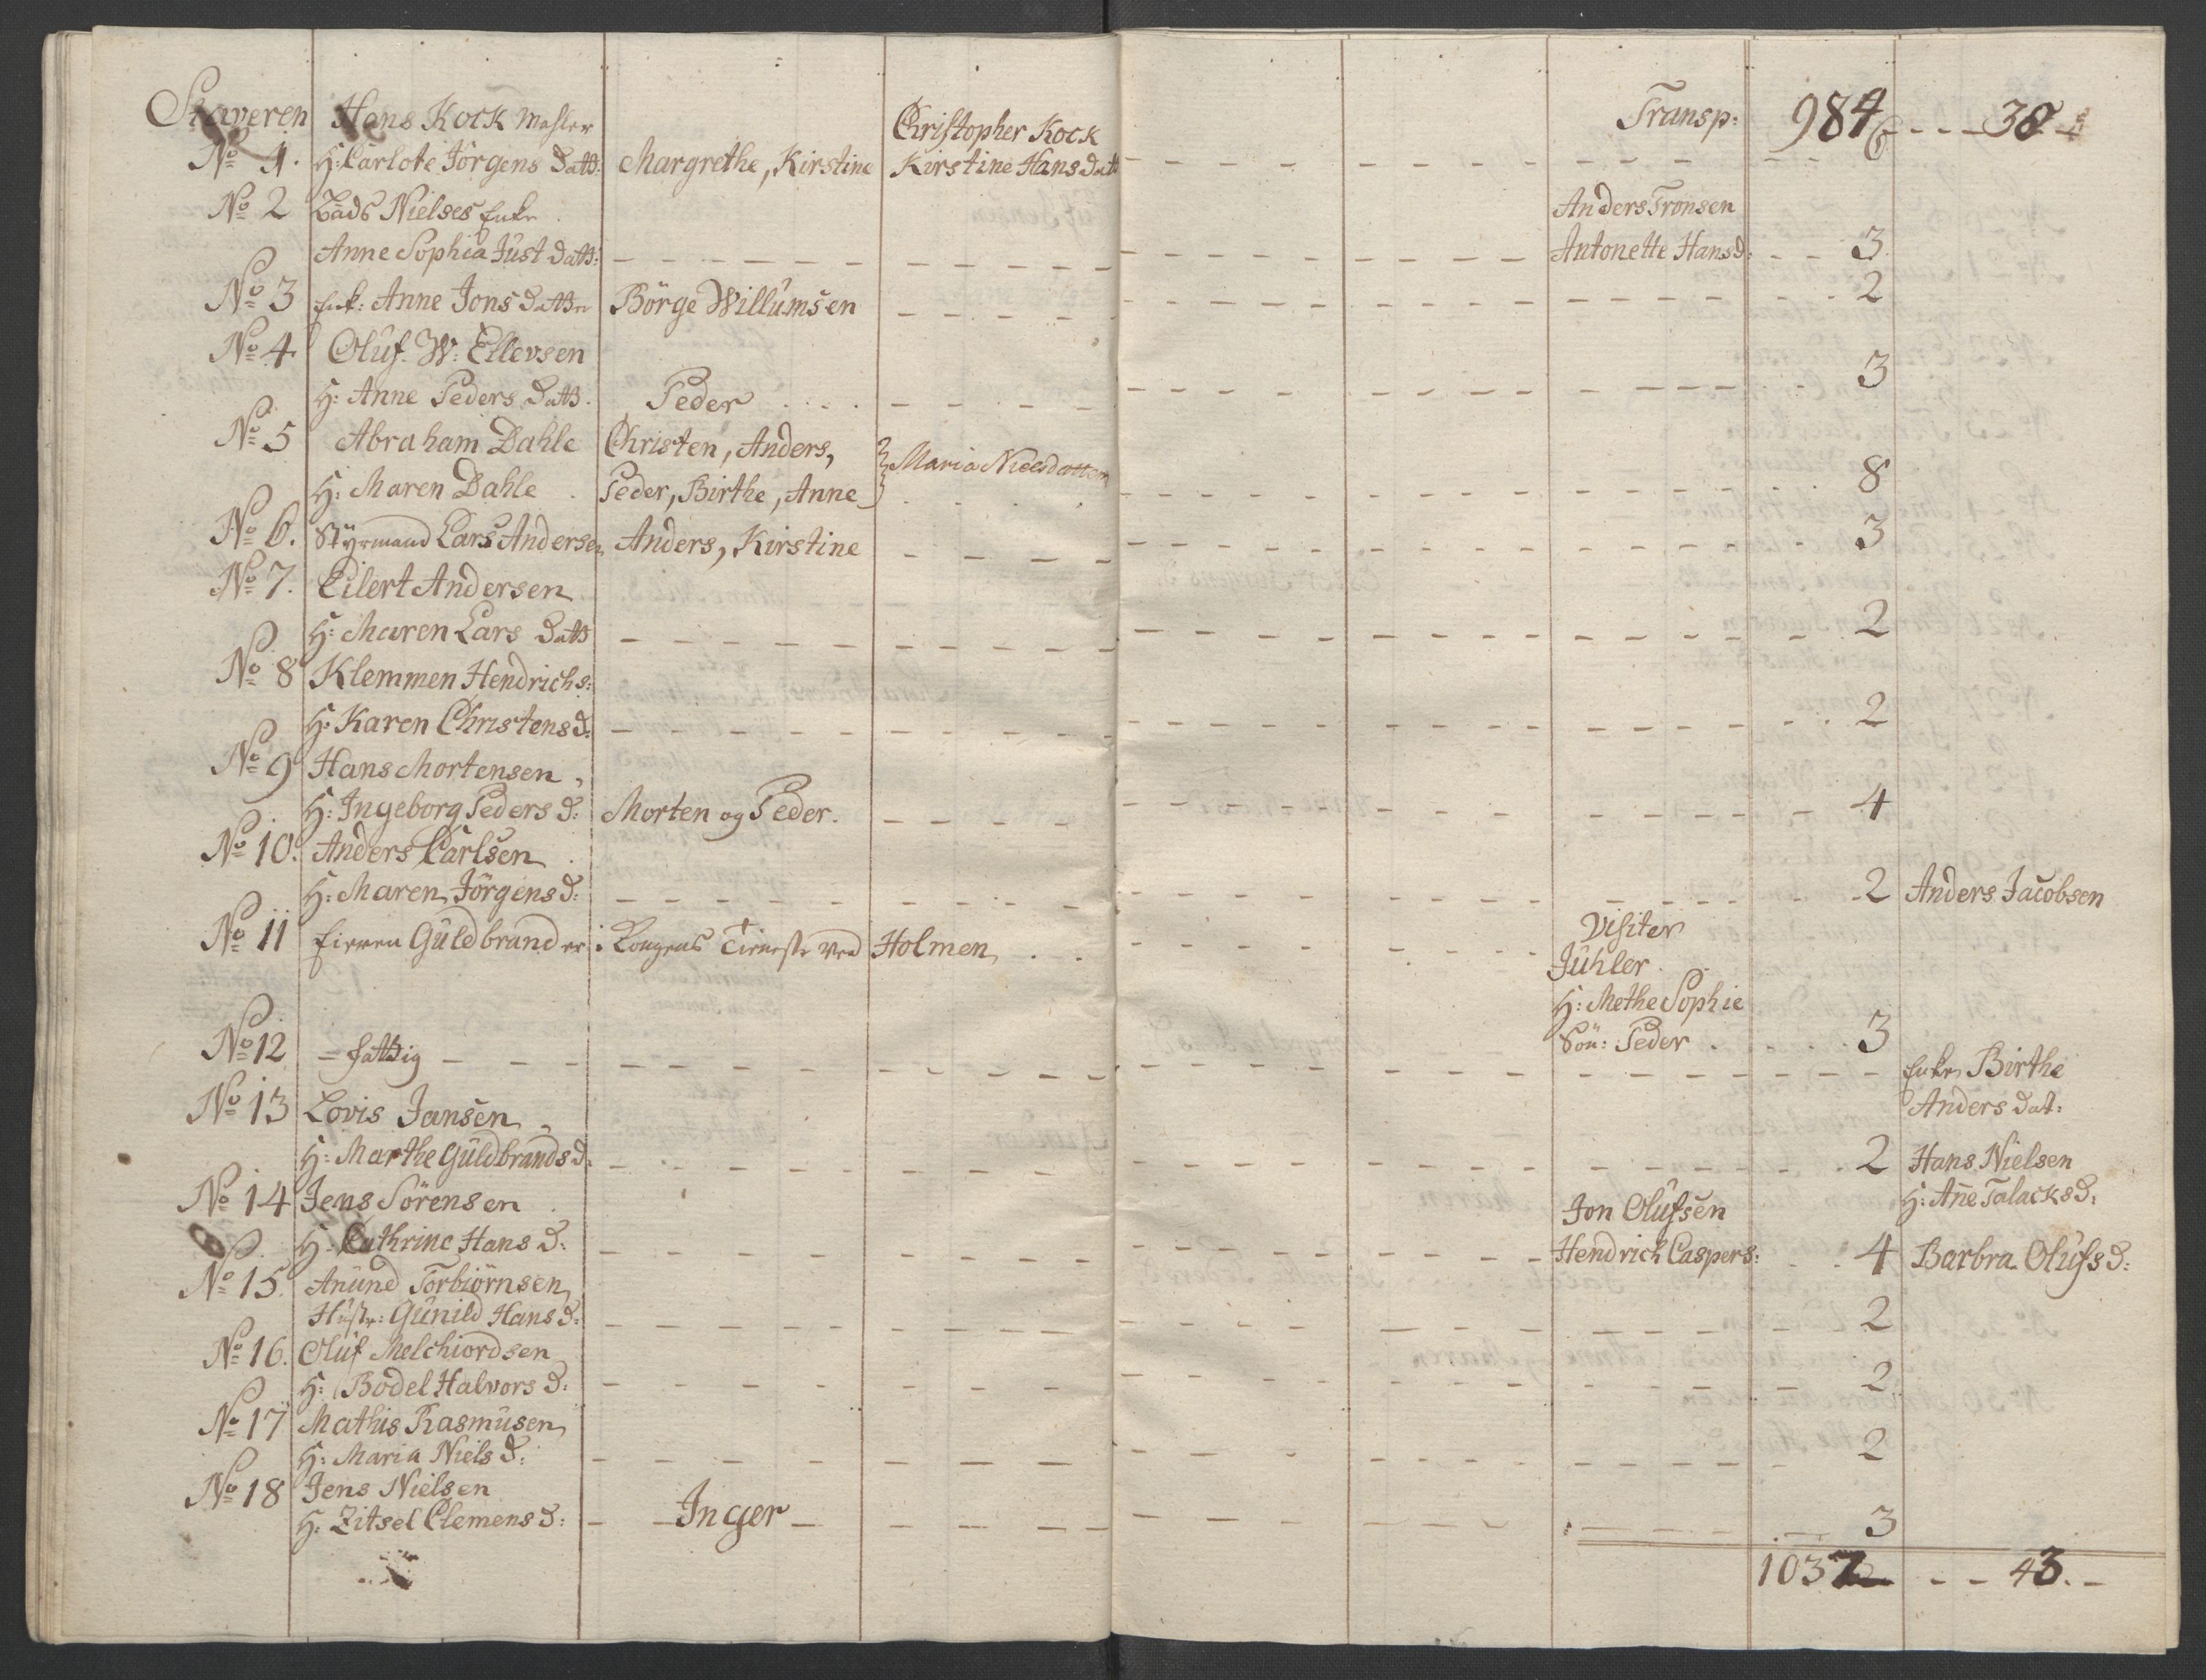 Staveren Hans Kock Mahler Christopher Kock Transp: 984 - - - 38
No 1. H: Carlote Jörgens Datt: Margrethe, Kirstine Kirstine Hans Datt 6
No 2 Lads Nielses Enke Anders Tronsen
Anne Sophia Just Datt: Antonette Hansd: 3
No 3 Enk: Anne Jons Datter Börge Willumsen 2
No 4 Oluf W: Ellevsen 3
H: Anne Peders Datt. Peder
No 5 Abraham Dahle Christen, Anders, Maria Nielsdatter
H: Maren Dahle Peder, Birthe, Anne 8
No 6. Styrmand Lars Andersen Anders, Kirstine 3
No 7. Eilert Andersen
H: Maren Lars Datt 2
No 8 Klemmen Hendrichs:
H: Karen Christens d: 2
No 9 Hans Mortensen
H: Ingeborg Peders d: Morten og Peder. 4
No 10. Anders Carlsen
H: Maren Jörgens d: 2 Anders Jacobsen
No 11 Eieren Guldbrand er i Kongens Tieneste ved Holmen Visiter
Juhler
H: Methe Sophie
Sön: Peder 3
No 12 - fattig - Enke Birthe
Anders dat:
No 13 Lovis Jansen
H: Marthe Guldbrands d: 2 Hans Nielsen
No 14 Jens Sörensen Jon Olufsen H: Añe Talacks d:
H: Cathrine Hans d: Hendrich Caspers: 4 Barbra Olufs d:
No 15. Anund Torbiörnsen
Hustr: Gunild Hans d: 2
No 16. Oluf Melchiordsen
H: Bodel Halvors d: 2
No 17 Mathis Rasmusen
H: Maria Niels d: 2
No 18 Jens Nielsen
H: Zitsel Clemens d: Inger 3
1037 - - 43. -